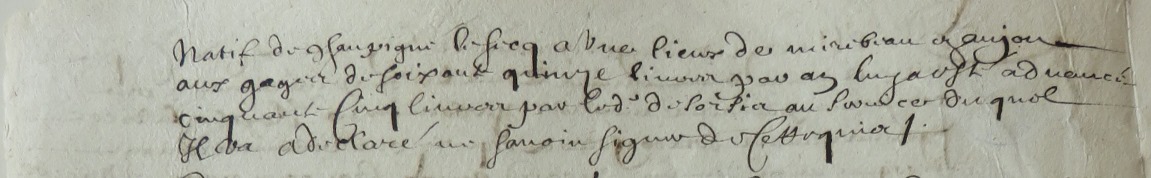 Natif de Champigne le secq a une lieux de mirebeau en anjou
aux gages de soixante quinze livres par an luy a esté advancé
cinquante cinq livres par led. de au duquel
Il a declaré ne savoir signer de ce